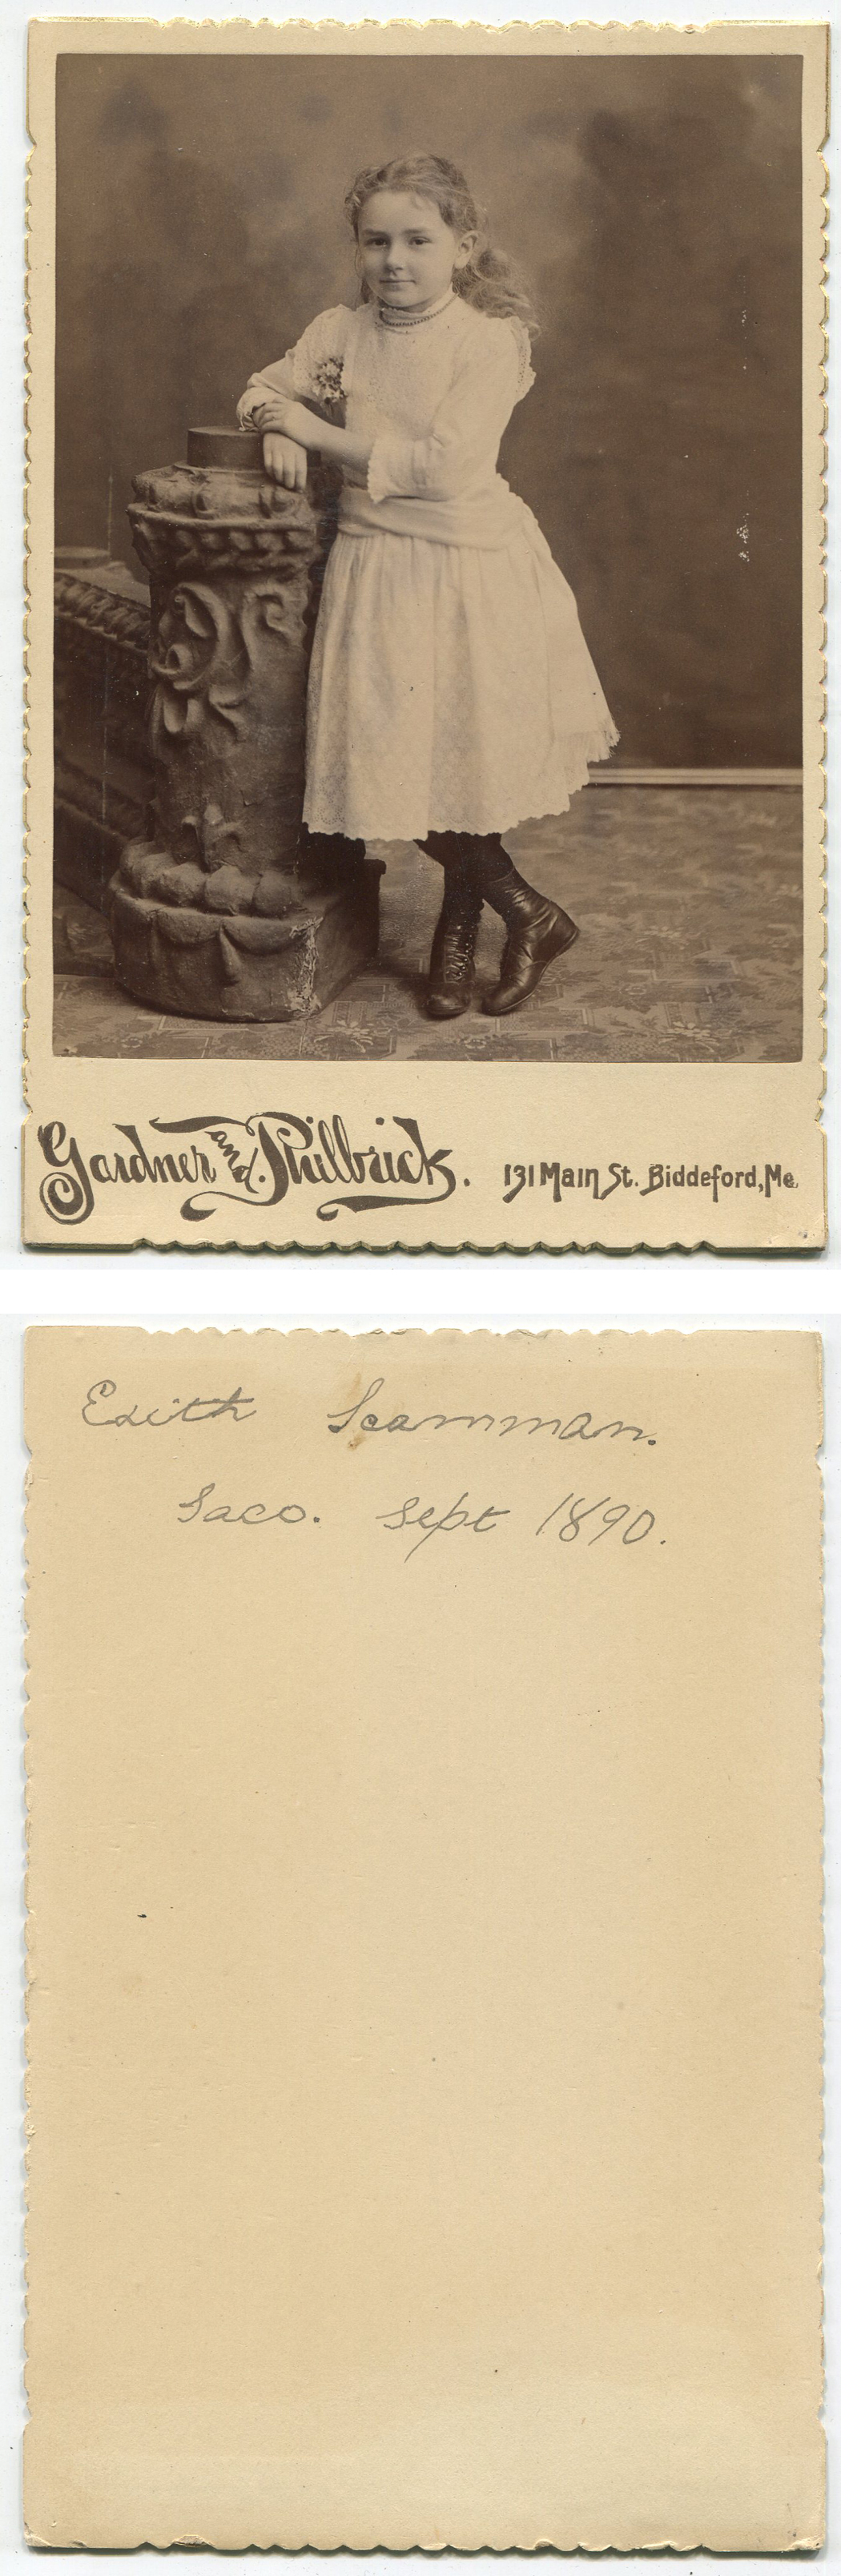 Gardner and Philbrick. 131 Main St. Biddeford, Me.
Edith Scamman.
Saco. Sept 1890.